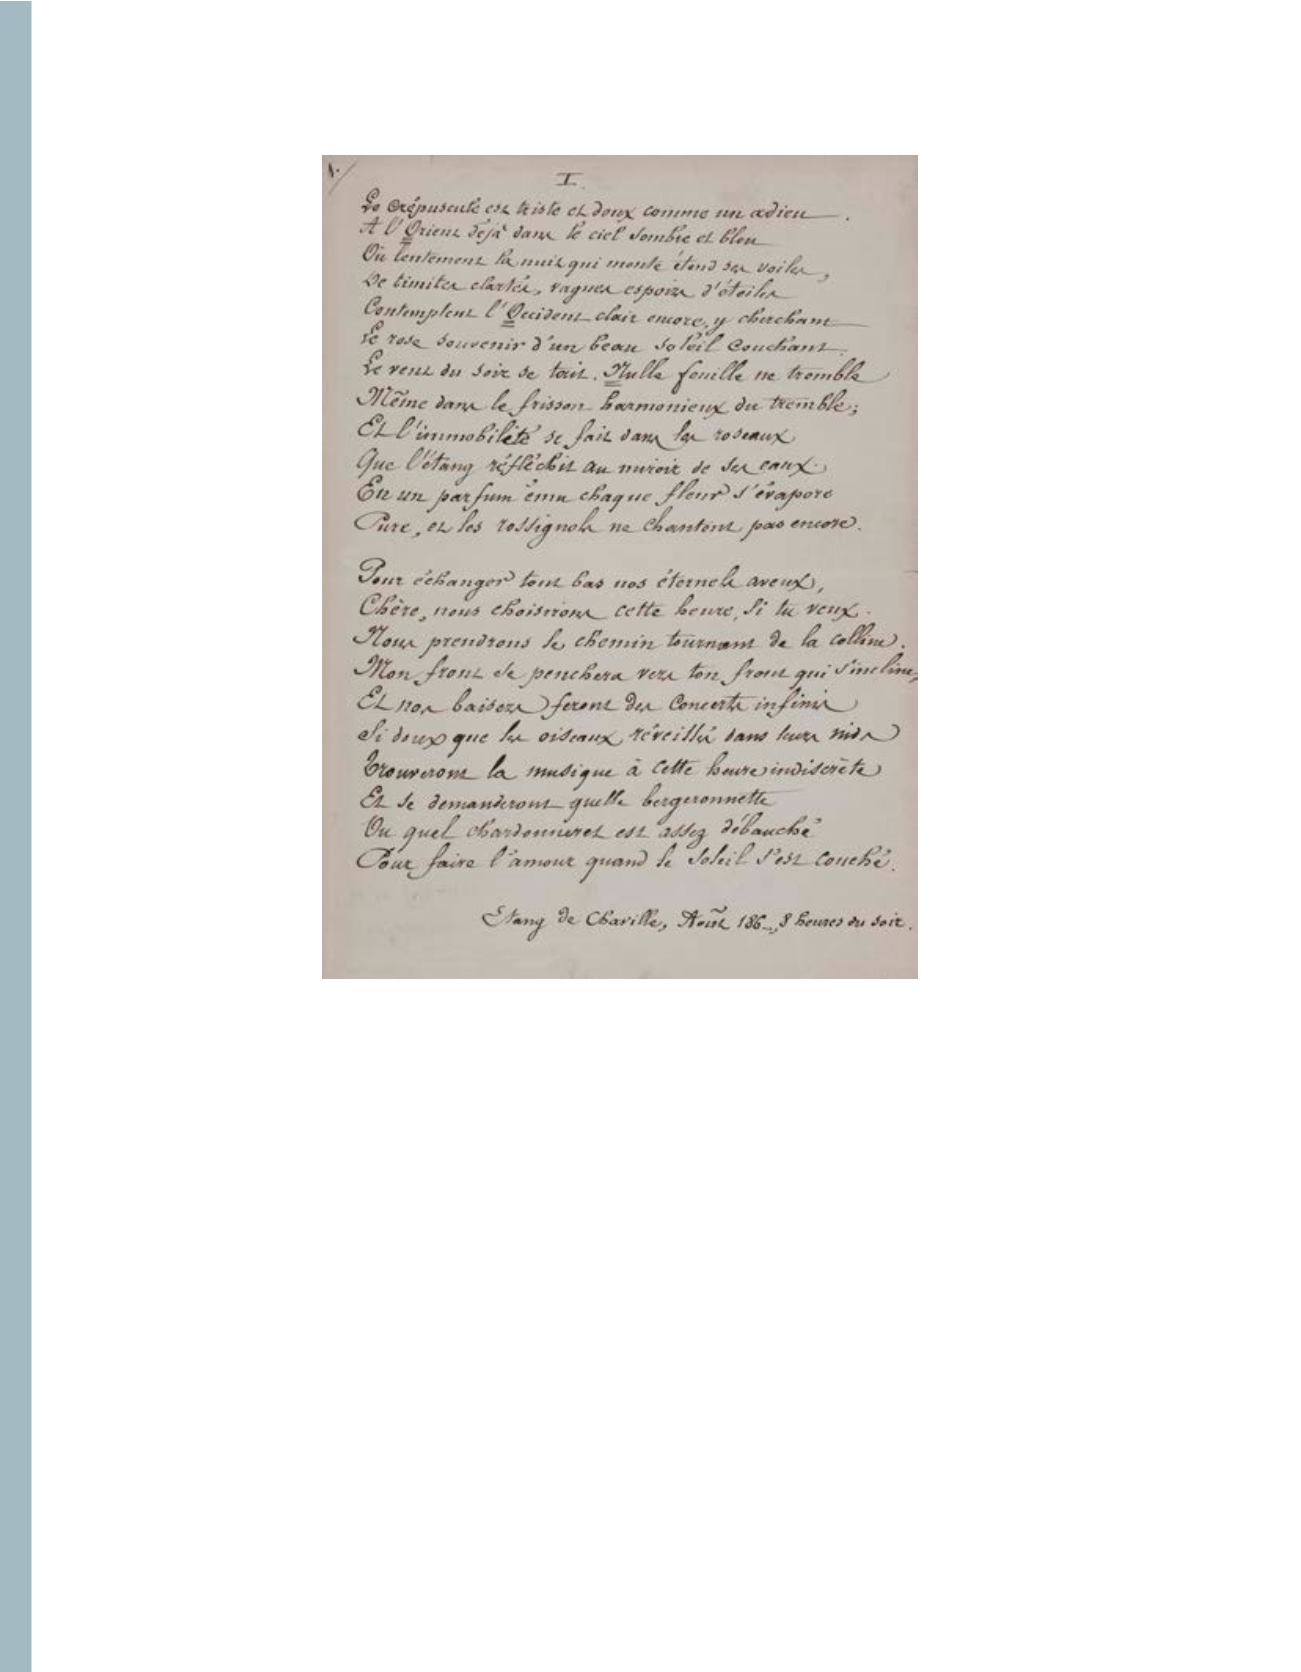 1.
I.
Le Crépuscule est triste et doux comme un adieu.
A l'Orient déjà dans le ciel sombre et bleu
Où lentement la nuit qui monte étend ses voiles,
De timides clartés, vagues espoirs d'étoiles
Contemplent l'Occident clair encore, y cherchant
Le rose souvenir d'un beau soleil couchant.
Le vent du soir se tait. Nulle feuille ne tremble
Même dans le frisson harmonieux du tremble;
Et l'immobilité se fait dans les roseaux
Que l'étang réfléchit au miroir de ses eaux.
En un parfum ému chaque fleur s'évapore
Pure, et les rossignols ne chantent pas encore.
Pour échanger tout bas nos éternels aveux,
Chère, nous choisirons cette heure, si tu veux.
Nous prendrons le chemin tournant de la colline.
Mon front se penchera vers ton front qui s'incline,
Et nos baisers feront des concerts infinis
Si doux que les oiseaux réveillés dans leurs nids
Trouveront la musique à cette heure indiscrète
Et se demanderont quelle bergeronnette
Ou quel chardonneret est assez débauché
Pour faire l'amour quand le soleil s'est couché.
Etang de Chaville, Août 186_, 8 heures du soir.